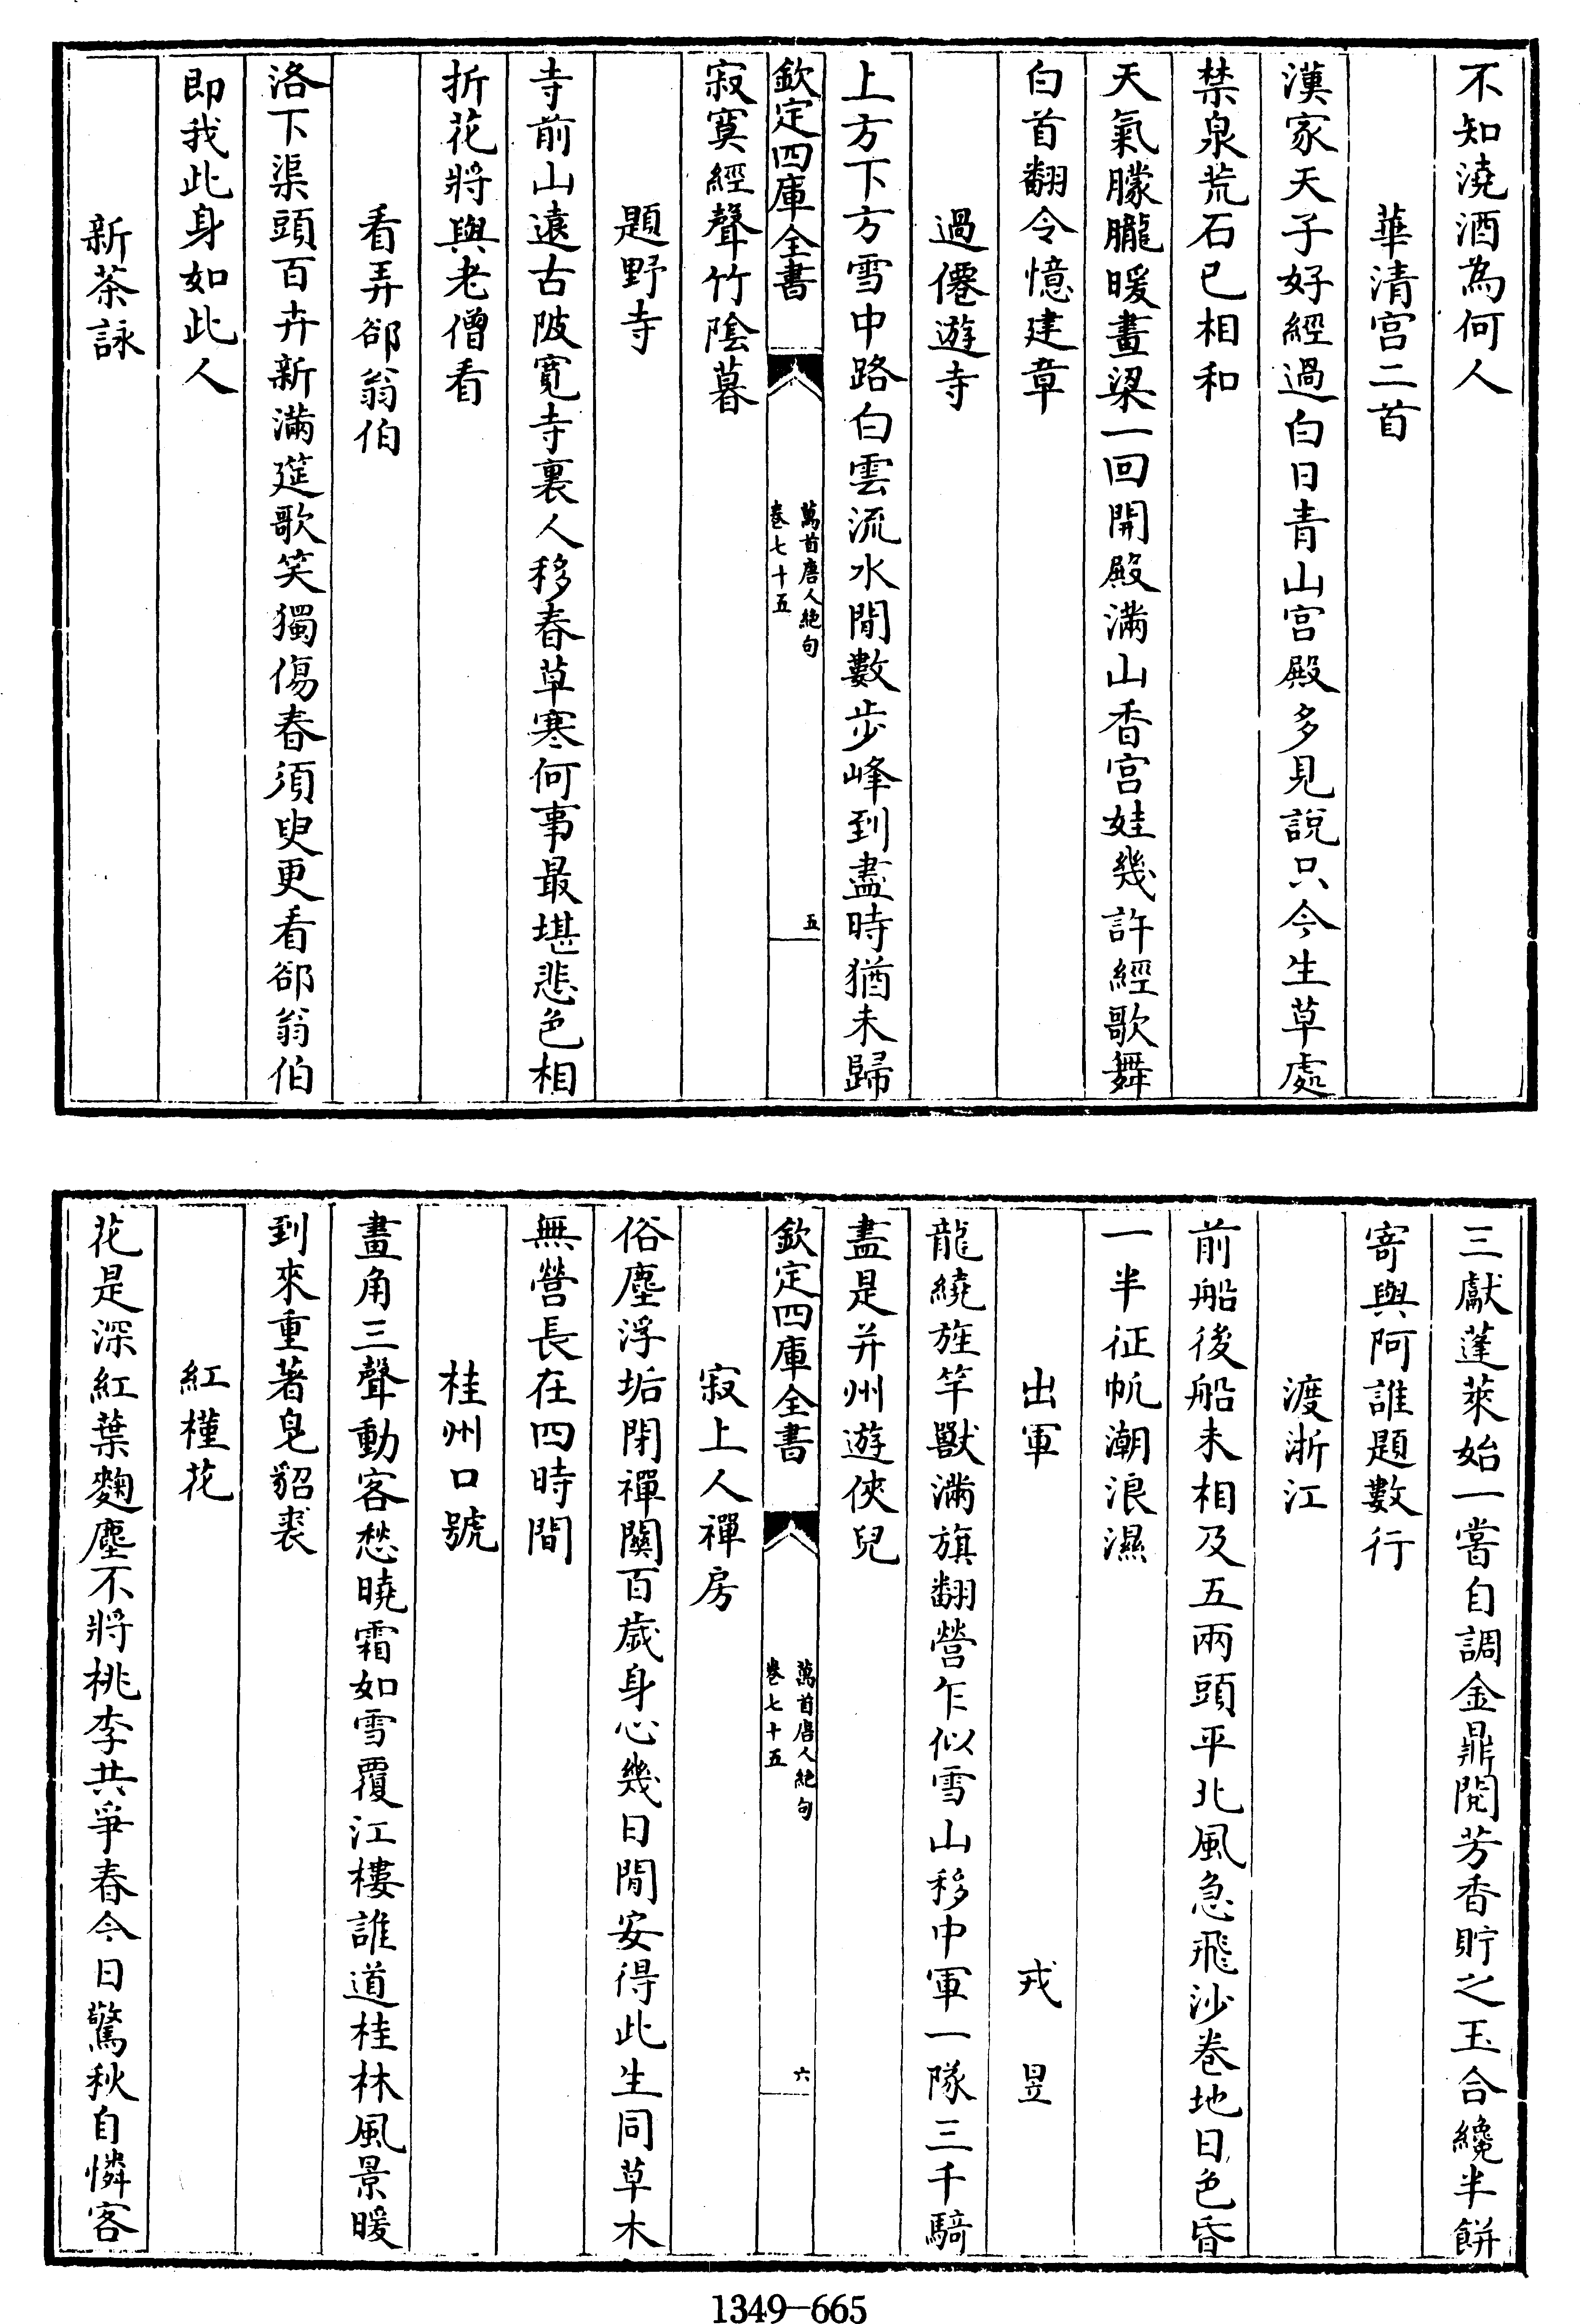 不知澆酒為何人
華清宫二首
漢家天子好經過白日青山宫殿多見說只今生草處
禁泉荒石已相和
天氣朦朧暖畫梁一回開殿滿山香宫娃幾許經歌舞
白首翻令憶建章
過僊遊寺
上方下方雪中路白雲流水閒數步峰到盡時猶未歸
欽定四庫全書
萬首唐人絶句
卷七十五
五
寂寞經聲竹陰暮
題野寺
寺前山遠古陂寛寺裏人移春草寒何事最堪悲色相
折花將與老僧看
看弄郤翁伯
洛下渠頭百卉新滿筵歌笑獨傷春須臾更看郤翁伯
即我此身如此人
新茶詠
三獻蓬萊始一嘗自調金鼎閲芳香貯之玉合纔半餅
寄與阿誰題數行
渡浙江
前船後船未相及五兩頭平北風急飛沙巻地日色昏
一半征帆潮浪濕
出軍 戎昱
龍繞旌竿獸滿旗翻營乍似雪山移中軍一隊三千騎
盡是并州遊俠兒
欽定四庫全書
萬首唐人絶句
卷七十五
六
寂上人禪房
俗塵浮垢閉禪闗百歲身心幾日閒安得此生同草木
無營長在四時間
桂州口號
畫角三聲動客愁曉霜如雪覆江樓誰道桂林風景暖
到來重著皂貂裘
紅槿花
花是深紅葉麴塵不將桃李共爭春今日驚秋自憐客
1349—665